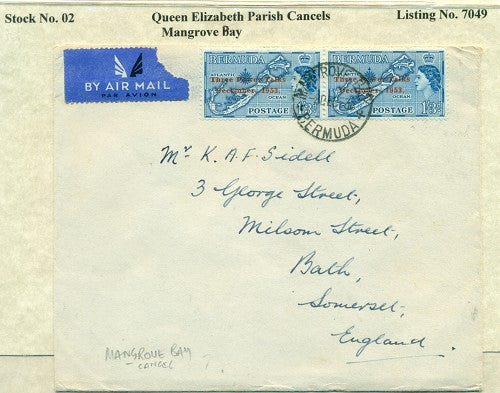 Stock No. 02 Queen Elizabeth Parish Cancels Listing No. 7049
Mangrove Bay
BY AIR MAIL
PAR AVION
BERMUDA
ATLANTIC
Three Power Talks
December, 1953.
OCEAN
POSTAGE
BERMUDA
Three Power Talks
December, 1953.
OCEAN
POSTAGE
1/3
MANGROVE BAY
BERMUDA
Mr K. A. F. Sidell
3 George Street,
Milsom Street,
Bath,
Somerset,
England.
MANGROVE BAY
CANCEL